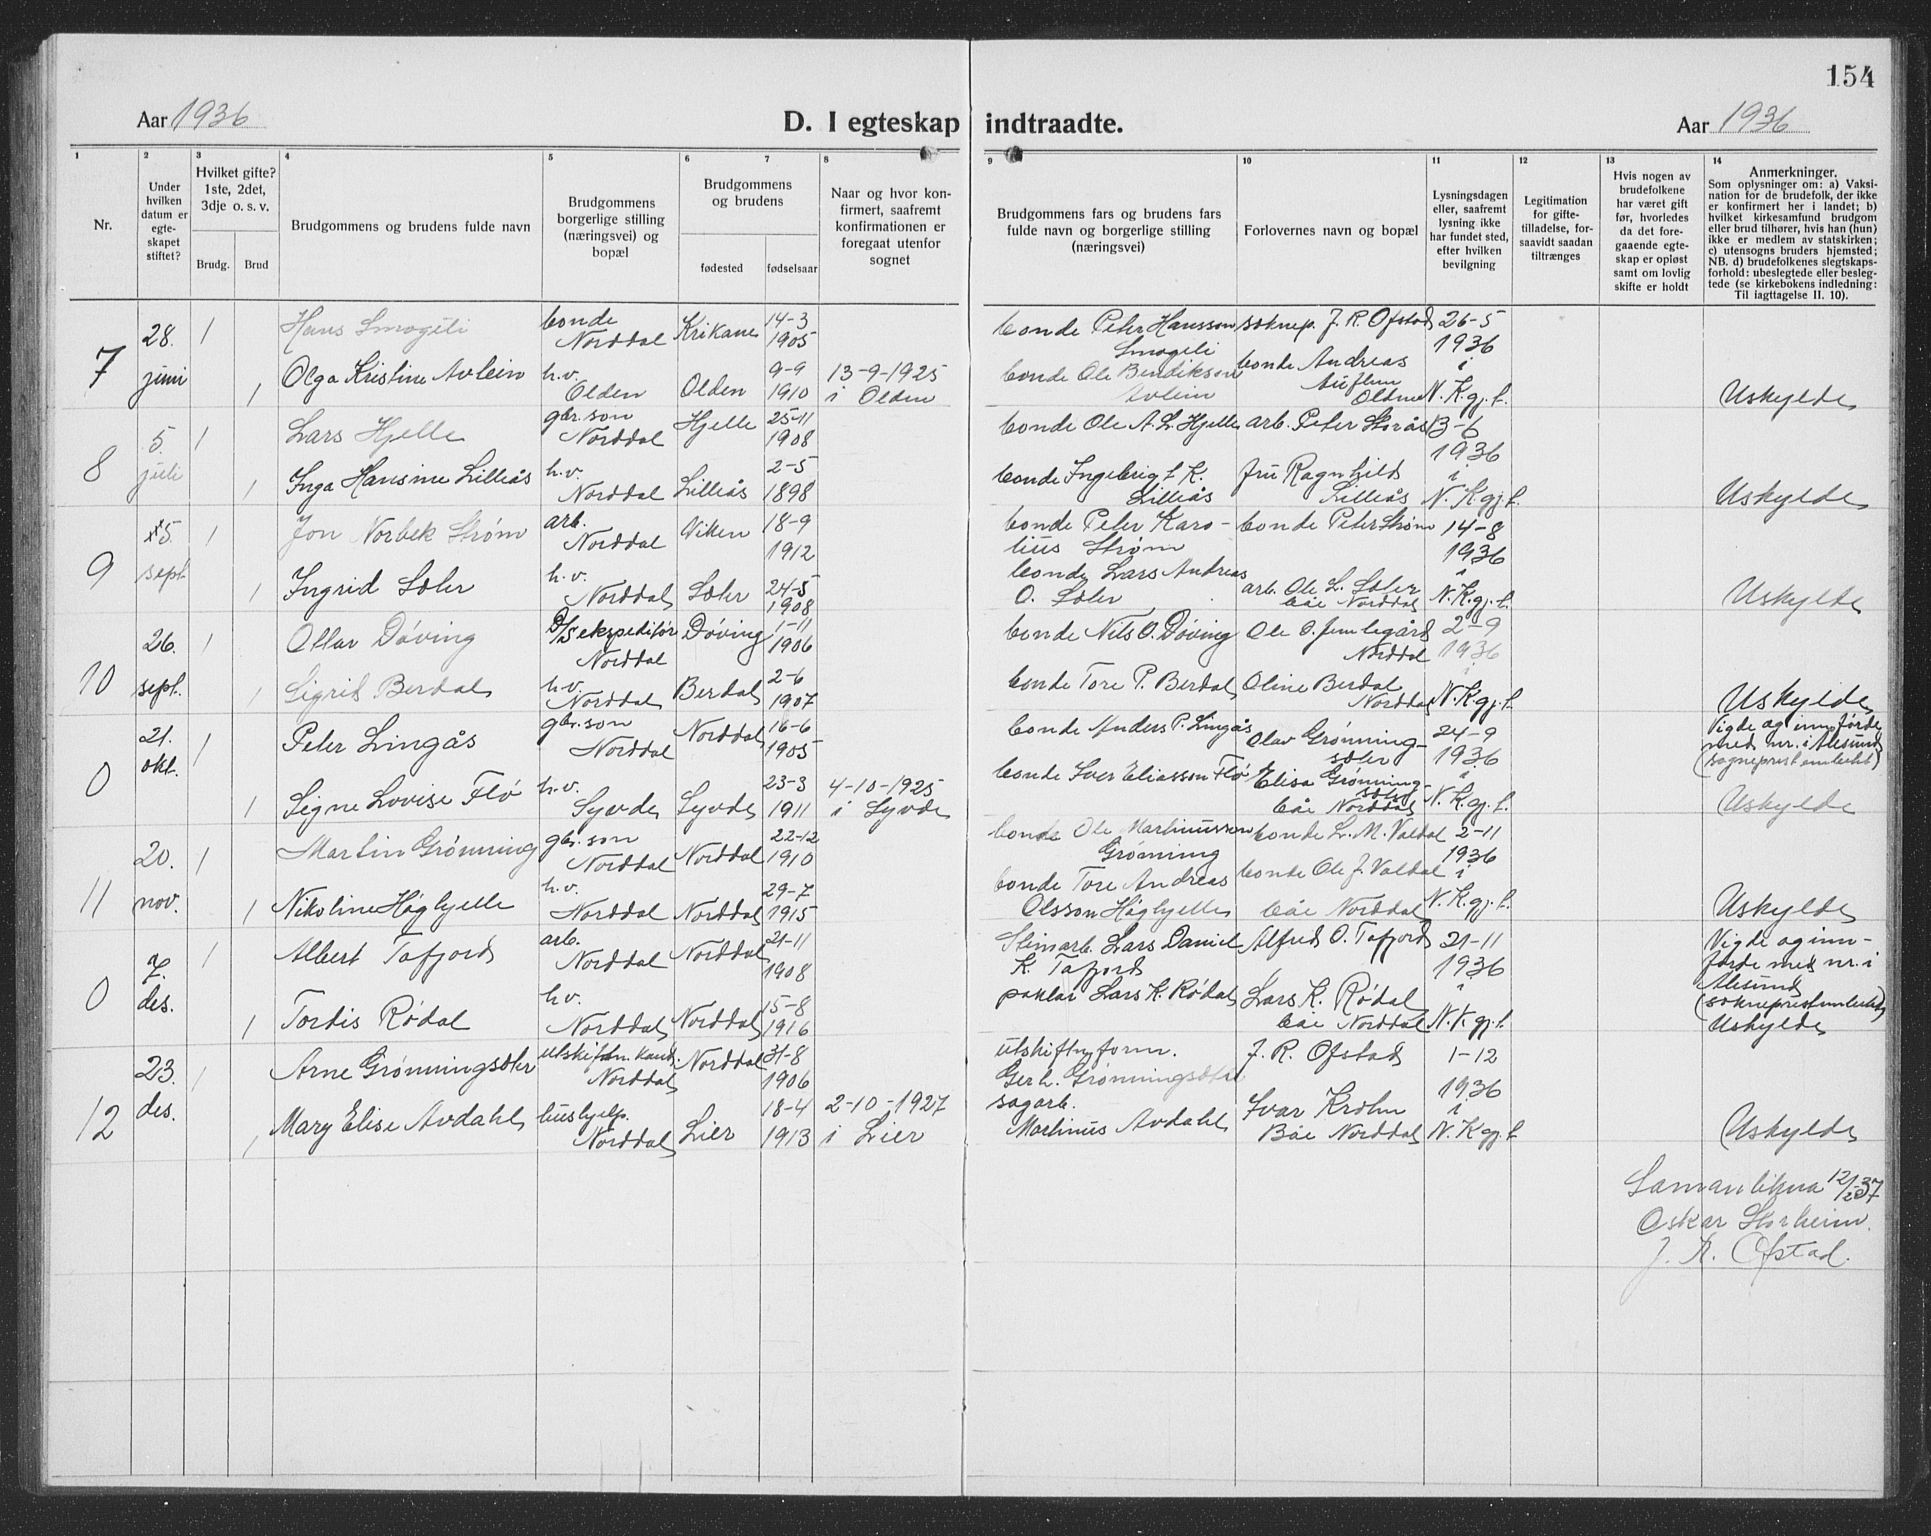 154
Aar 1936
D. I egteskap indtraadte.
Aar 1936
1 2 3 4 5 6 7 8 9 10 11 12 13 14
Nr.
Under hvilken datum er egte-skapet stiftet?
Hvilket gifte? 1ste, 2det, 3dje o. s. v.
Brudg. Brud
Brudgommens og brudens fulde navn
Brudgommens borgerlige stilling (næringsvei) og bopæl
Brudgommens og brudens
fødested fødselsaar
Naar og hvor kon-firmert, saafremt konfirmationen er foregaat utenfor sognet
Brudgommens fars og brudens fars fulde navn og borgerlige stilling (næringsvei)
Forlovernes navn og bopæl
Lysningsdagen eller, saafremt lysning ikke har fundet sted, efter hvilken bevilgning
Legitimation for gifte-tilladelse, for-saavidt saadan tiltrænges
Hvis nogen av brudefolkene har været gift før, hvorledes da det fore-gaaende egte-skap er opløst samt om lovlig skifte er holdt
Anmerkninger.
Som oplysninger om: a) Vaksi-nation for de brudefolk, der ikke er konfirmert her i landet; b) hvilket kirkesamfund brudgom eller brud tilhører, hvis han (hun) ikke er medlem av statskirken; c) utensogns bruders hjemsted; NB. d) brudefolkenes slegtskaps-forhold: ubeslegtede eller besleg-tede (se kirkebokens indledning: Til iagttagelse II. 10).
7 28. juni
1 Hans Smogeli bonde Norddal Krikane 14-3 1905 bonde Peter Hansson Smogeli soknep. J. R. Ofstad 26-5 1936
1 Olga Kristine Avlein h.v. Olden Olden 9-9 1910 13-9-1925 i Olden bonde Ole Bendikson Avlein bonde Andreas Olden i N. K gj. l. Uskylde
8 5. juli
1 Lars Hjelle gbr. son Norddal Hjelle 25-11 1908 bonde Ole A. L. Hjelle arb. Peter Storås 13-6 1936
1 Inga Hansine Lilleås h.v. Norddal Lilleås 2-5 1898 bonde Ingebrigt K. Lilleås fru Ragnhild Lilleås i N. K gj. l. Uskylde
9 5. sept.
1 Jon Norbek Strøm arb. Norddal Viken 18-9 1912 bonde Peter Karo-lius Strøm bonde Peter Strøm 14-8 1936
1 Ingrid Sæler h.v. Norddal Sæler 24-5 1908 bonde Lars Andreas O. Sæler arb. Ole L. Sæler båe Norddal i N. K. gj. l. Uskylde
10 26. sept.
1 Ottar Døving D/S ekspeditør Norddal Døving 1-11 1906 bonde Nils O. Døving Ole O. Jemlegård Norddal 2-9 1936
1 Sigrid Berdal h.v. Norddal Berdal 2-6 1907 bonde Tore P. Berdal Oline Berdal Norddal i N. K gj. l. Uskylde
0 21. okt.
1 Peter Lingås gbr. son Norddal Norddal 16-6 1905 bonde Anders P. Lingås Olav Grønning-sæter 24-9 1936 Vigde og innførde med nr. i Ålesund (sogneprestembetet)
1 Signe Lovise Flø h.v. Syvde Syvde 23-3 1911 4-10-1925 i Syvde bonde Sver Eliasson Flø Elisa Grønning-sæter båe Norddal i N. K. gj. l. Uskylde
11 20. nov.
1 Martin Grønning gbr. son Norddal Norddal 22-12 1910 bonde Ole Martinussen Grønning bonde L. M. Valdal 2-11 1936
1 Nikoline Høghjelle h.v. Norddal Norddal 29-7 1915 bonde Tore Andreas Olsson Høghjelle bonde Ole J. Valdal båe Norddal i N. K. gj. l. Uskylde
0 7. des.
1 Albert Tafjord arb. Norddal Norddal 21-11 1908 Steinarb. Lars Daniel K. Tafjord Alfred O. Tafjord 21-11 1936 Vigde og inn-førde med nr. i Ålesund (sokneprestembetet)
1 Tordis Rødal h.v. Norddal Norddal 15-8 1916 Lars K. Rødal Lars K. Rødal båe Norddal i N. K gj. l. Uskylde
12 23. des.
1 Arne Grønningsæter utskiftn. kand. Norddal Norddal 31-8 1906 utskiftn. form. Gerh. Grønningsæter J. R. Ofstad 1-12 1936
1 Mary Elise Avdahl hushjelp. Norddal Lier 18-4 1913 2-10-1927 i Lier sagarb. Martinus Avdahl Ivar Krohn Båe Norddal i N. K gj. l. Uskylde
Samanlikna 12/2-37
Oskar Storheim.
J. R. Ofstad.